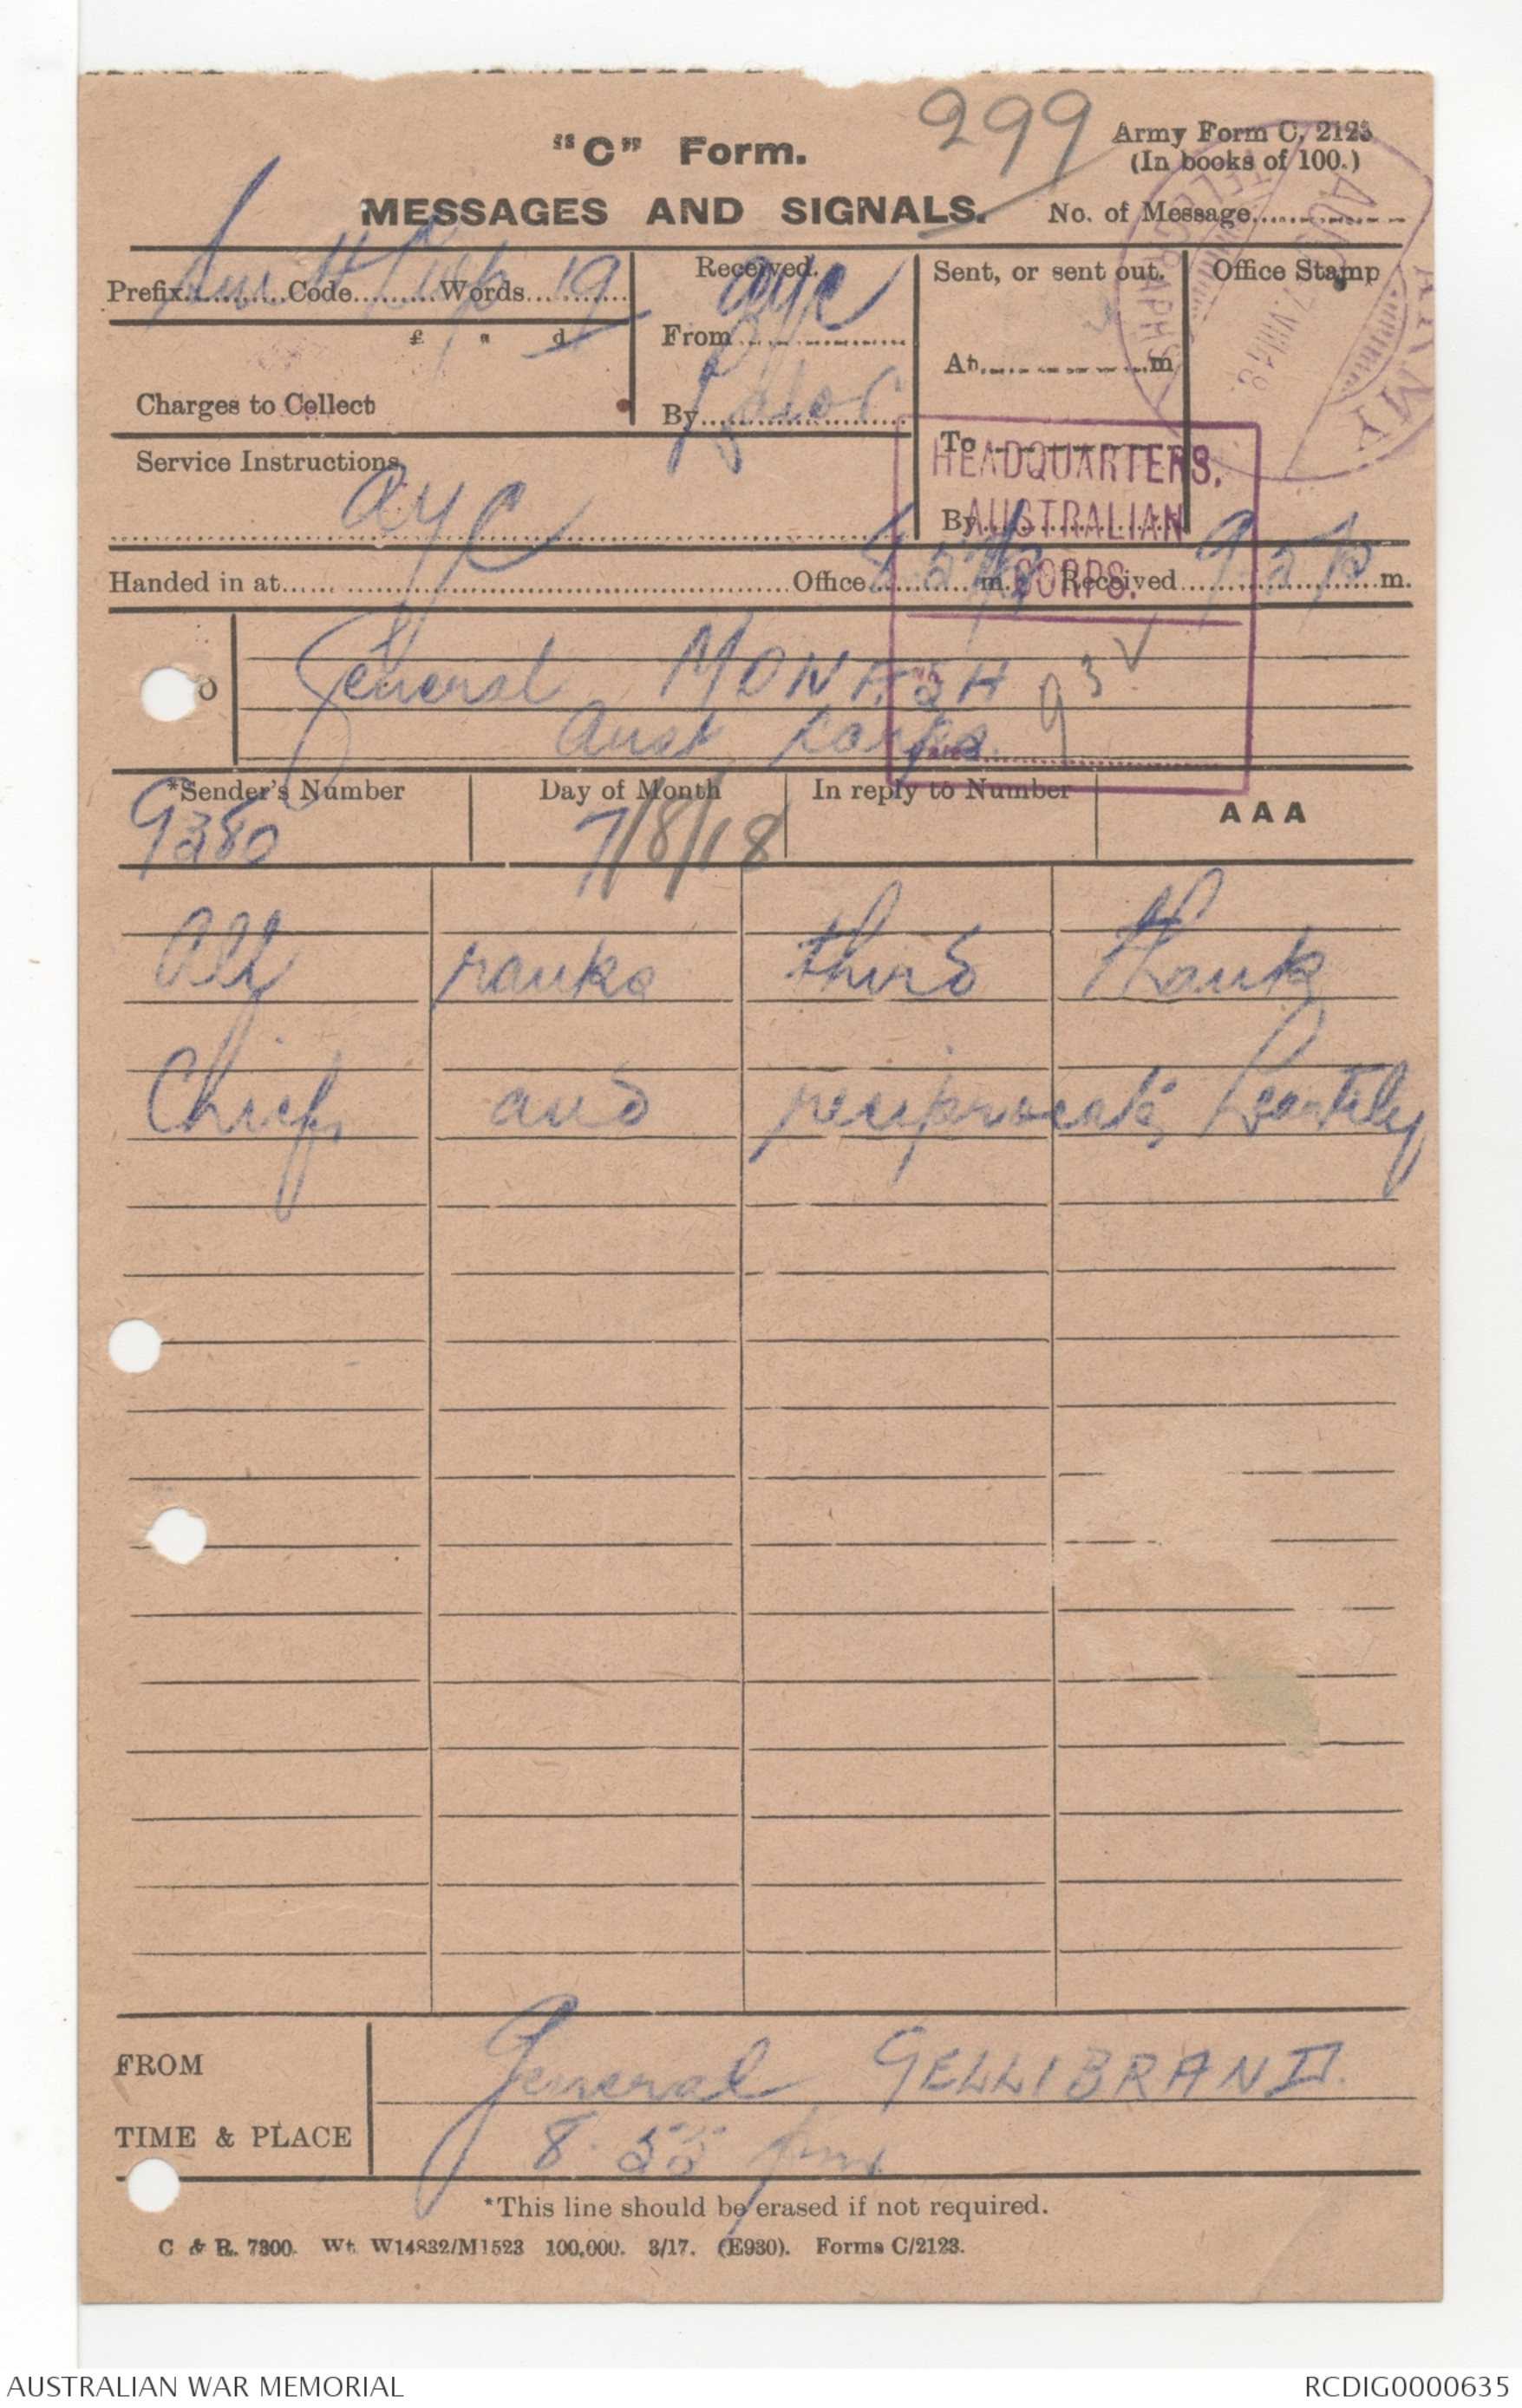 299
"C" Form.
Army Form C. 2123
(In books of 100.)
MESSAGES AND SIGNALS.
No. of Message
Prefix Code Words 19
Received.
Sent, or sent out.
Office Stamp
£ s d
From ayc
At m
Charges to Collect
By
To
Service Instructions
ayc
By
HEADQUARTERS,
AUSTRALIAN
CORPS.
ARMY
TELEGRAPHS
7.VIII.18
Handed in at Office m. Received 9.5 p m.
General MONASH
Aust Corps.
No.
93
Date
*Sender's Number
Day of Month
In reply to Number
AAA
G380
7/8/18
All ranks third thank
Chief and reciprocate heartily
FROM
General GELLIBRAND.
TIME & PLACE
8.55 pm
*This line should be erased if not required.
C & R. 7300. Wt. W14832/M1523 100,000. 3/17. (E930). Forms C/2123.
AUSTRALIAN WAR MEMORIAL
RCDIG0000635